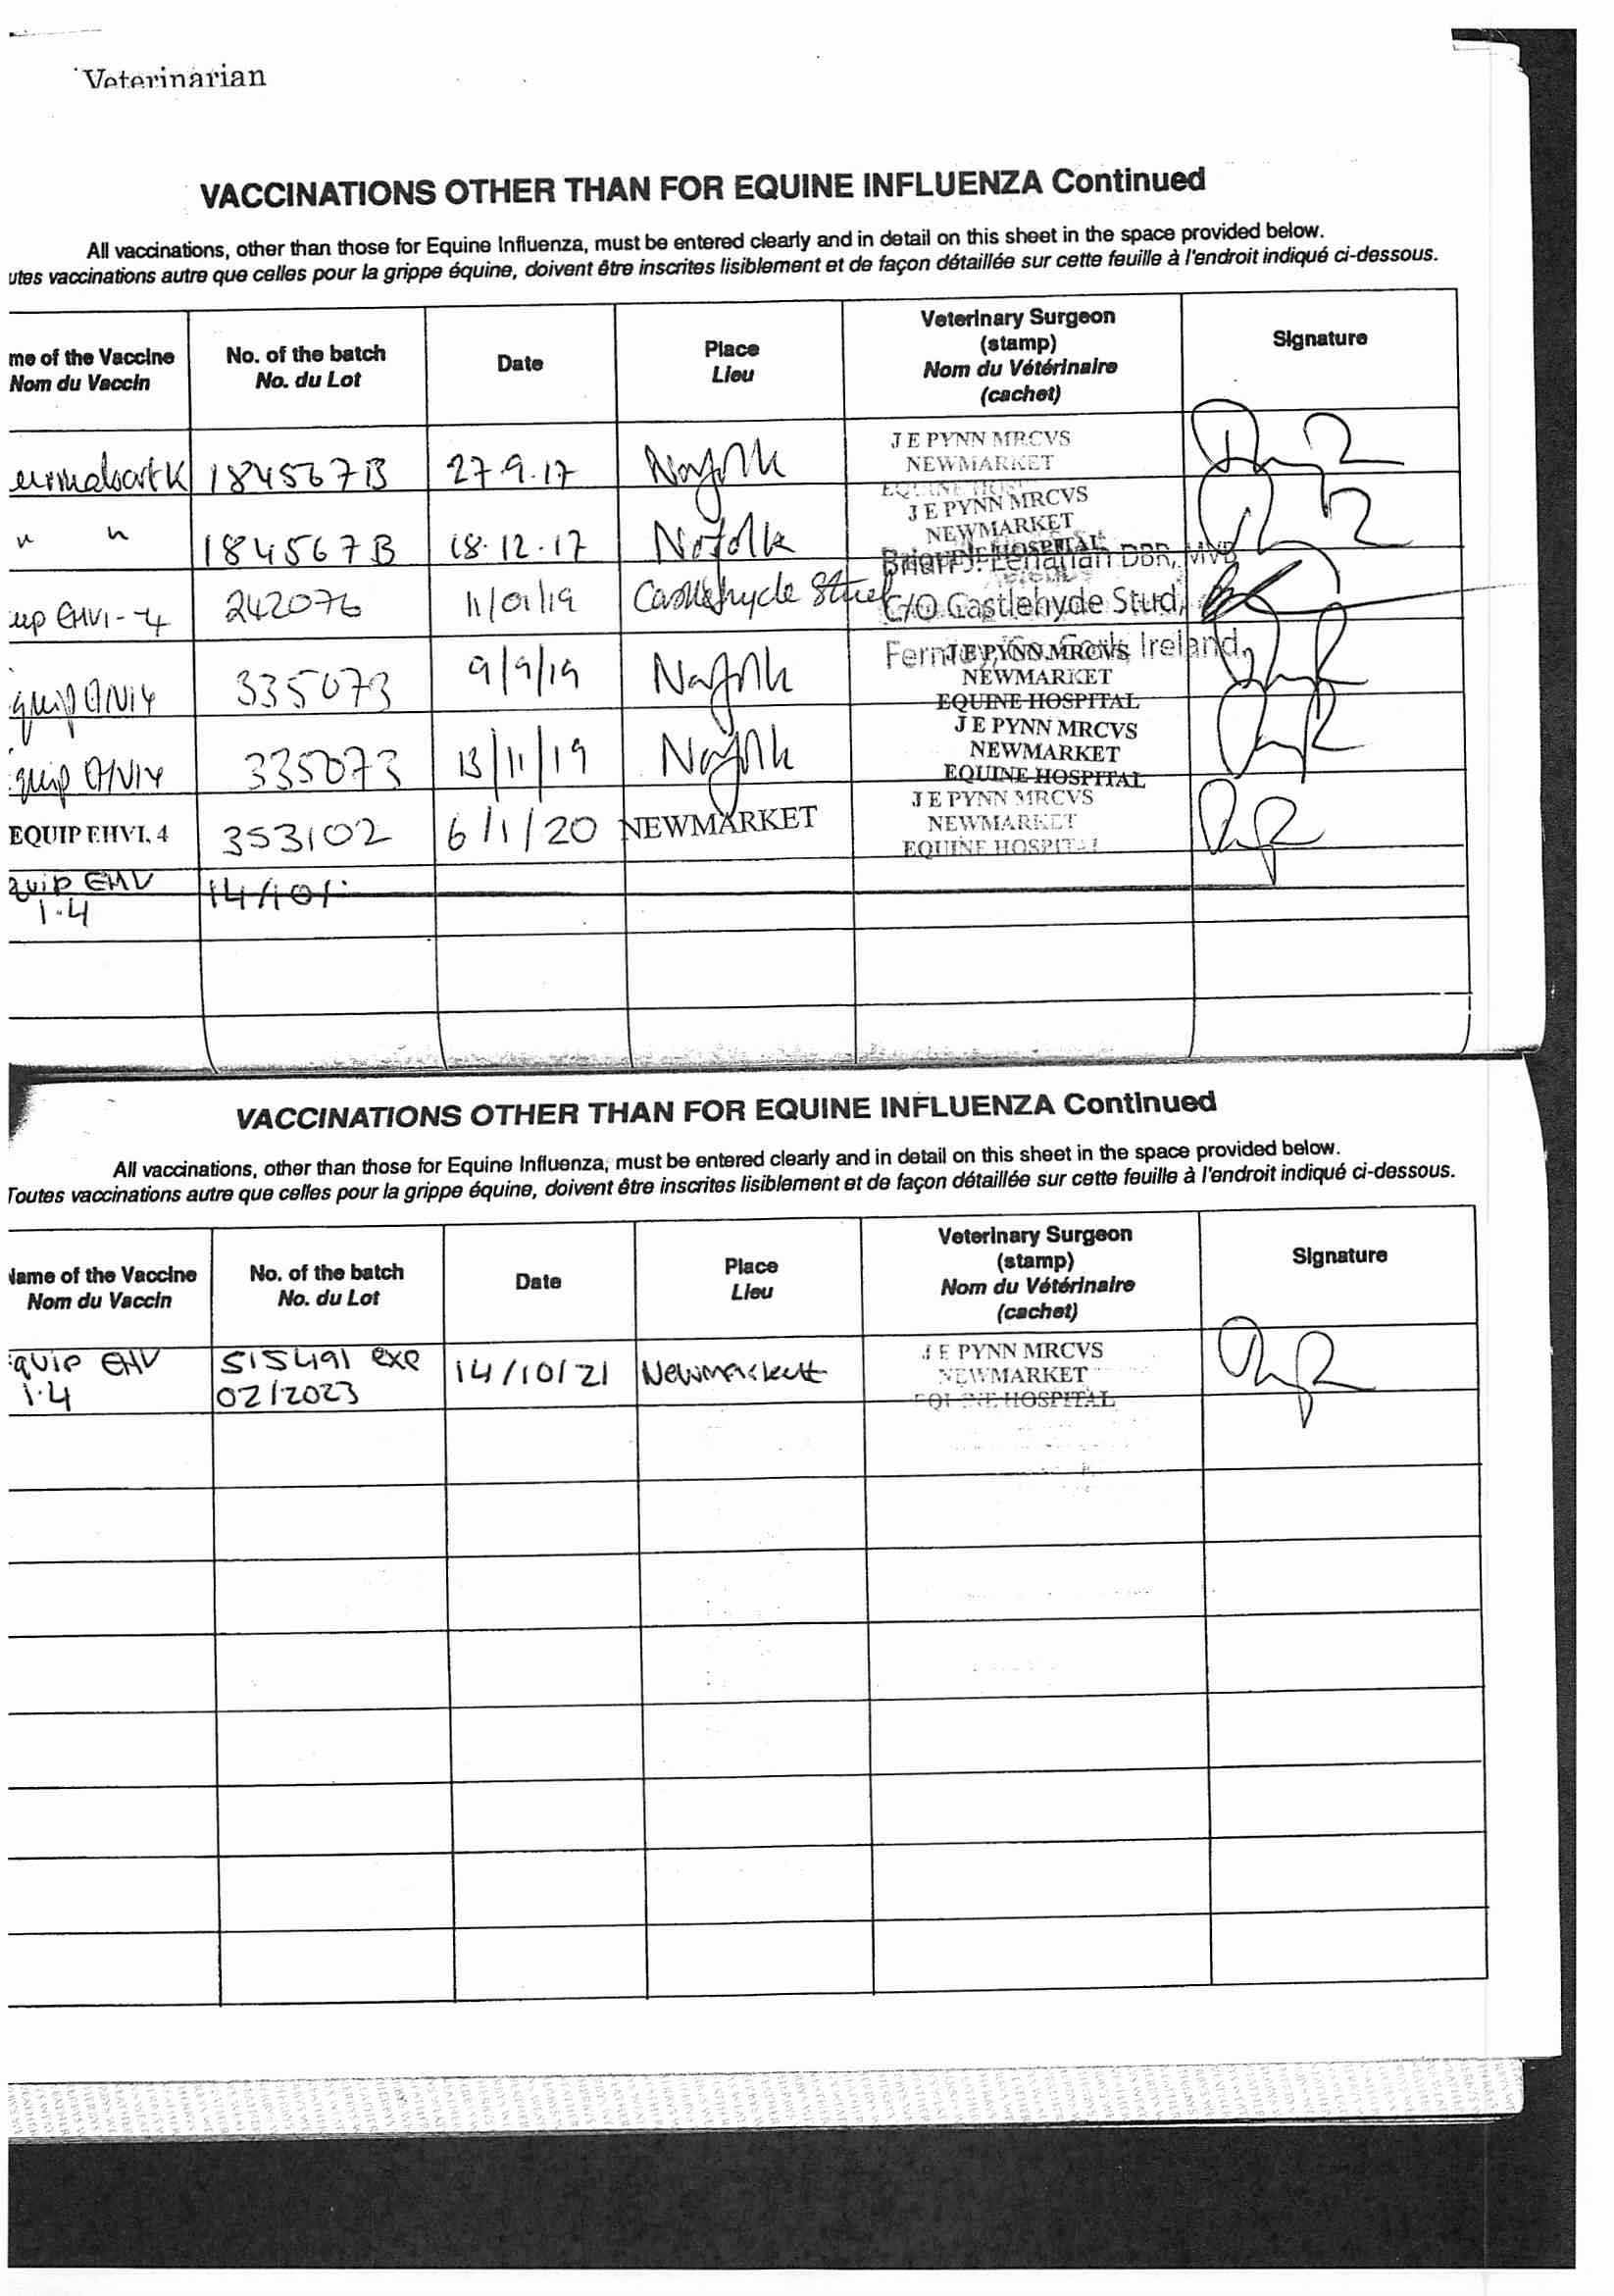 Veterinarian
VACCINATIONS OTHER THAN FOR EQUINE INFLUENZA Continued
All vaccinations, other than those for Equine Influenza, must be entered clearly and in detail on this sheet in the space provided below.
utes vaccinations autre que celles pour la grippe équine, doivent être inscrites lisiblement et de façon détaillée sur cette feuille à l'endroit indiqué ci-dessous.
me of the Vaccine
Nom du Vaccin
No. of the batch
No. du Lot
Date
Place
Lieu
Veterinary Surgeon
(stamp)
Nom du Vétérinaire
(cachet)
Signature
184567B 27.9.17 Norfolk
J E PYNN MRCVS
NEWMARKET
" " 184567B 18.12.17 Norfolk
J E PYNN MRCVS
NEWMARKET
HOSPITAL
Brian J. Lenahan DBR, MVB
uip EHV1-4 242076 11/01/19 Castlehyde Stud
C/O Castlehyde Stud,
Ireland.
quip EHV14 335073 9/9/19 Norfolk
J E PYNN MRCVS
NEWMARKET
EQUINE HOSPITAL
quip EHV14 335073 13/11/19 Norfolk
J E PYNN MRCVS
NEWMARKET
EQUINE HOSPITAL
EQUIP EHV1, 4 353102 6/1/20 NEWMARKET
J E PYNN MRCVS
NEWMARKET
EQUINE HOSPITAL
quip EHV 14/10/
1.4
VACCINATIONS OTHER THAN FOR EQUINE INFLUENZA Continued
All vaccinations, other than those for Equine Influenza, must be entered clearly and in detail on this sheet in the space provided below.
Toutes vaccinations autre que celles pour la grippe équine, doivent être inscrites lisiblement et de façon détaillée sur cette feuille à l'endroit indiqué ci-dessous.
Name of the Vaccine
Nom du Vaccin
No. of the batch
No. du Lot
Date
Place
Lieu
Veterinary Surgeon
(stamp)
Nom du Vétérinaire
(cachet)
Signature
quip EHV 515491 exp 14/10/21 Newmarkett
1.4 02/2023
J E PYNN MRCVS
NEWMARKET
EQUINE HOSPITAL